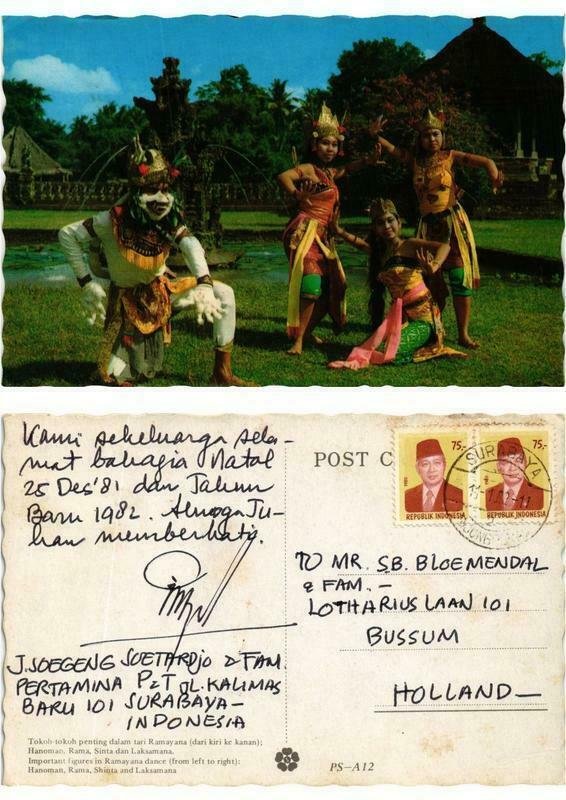 Kami sekeluarga sela-
mat bahagia Natal
25 Des '81 dan Tahun
Baru 1982. Semoga Tu-
han memberkati.
J. SOEGENG SOETARDJO & FAM.
PERTAMINA P2T JL. KALIMAS
BARU 101 SURABAYA -
INDONESIA
Tokoh-tokoh penting dalam tari Ramayana (dari kiri ke kanan);
Hanoman, Rama, Sinta dan Laksamana.
Important figures in Ramayana dance (from left to right):
Hanoman, Rama, Shinta and Laksamana
POST C
75,-
REPUBLIK INDONESIA
75,-
REPUBLIK INDONESIA
SURABAYA
TO MR. S.B. BLOEMENDAL
& FAM. -
LOTHARIUS LAAN 101
BUSSUM
HOLLAND -
PS-A12